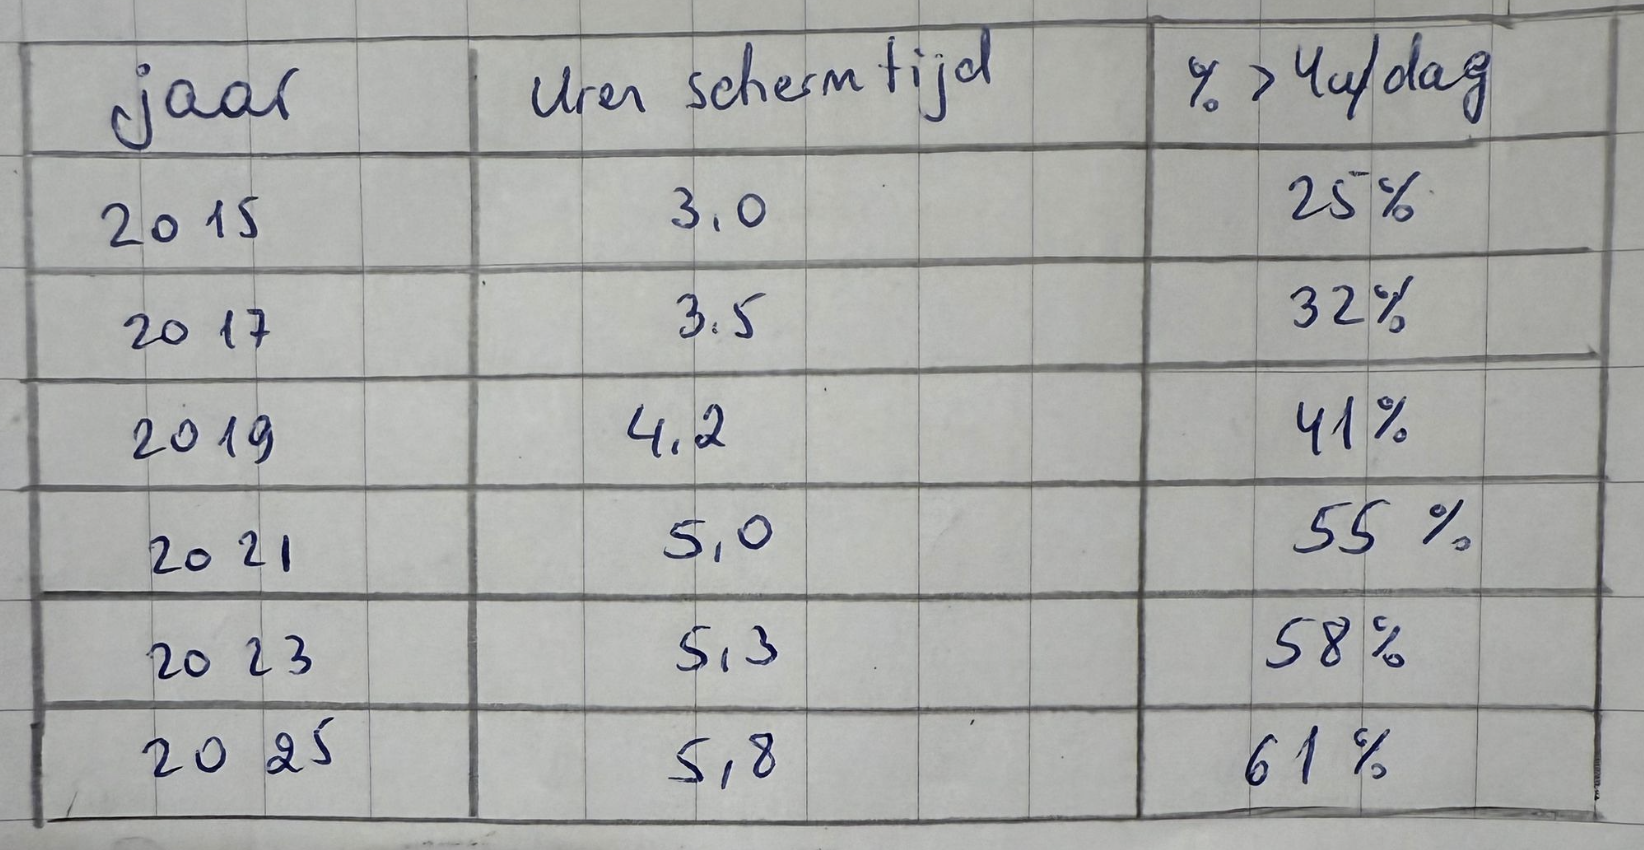 jaar Uren schermtijd % > 4u/dag
2015 3,0 25%
2017 3.5 32%
2019 4,2 41%
2021 5,0 55 %
2023 5,3 58%
2025 5,8 61 %